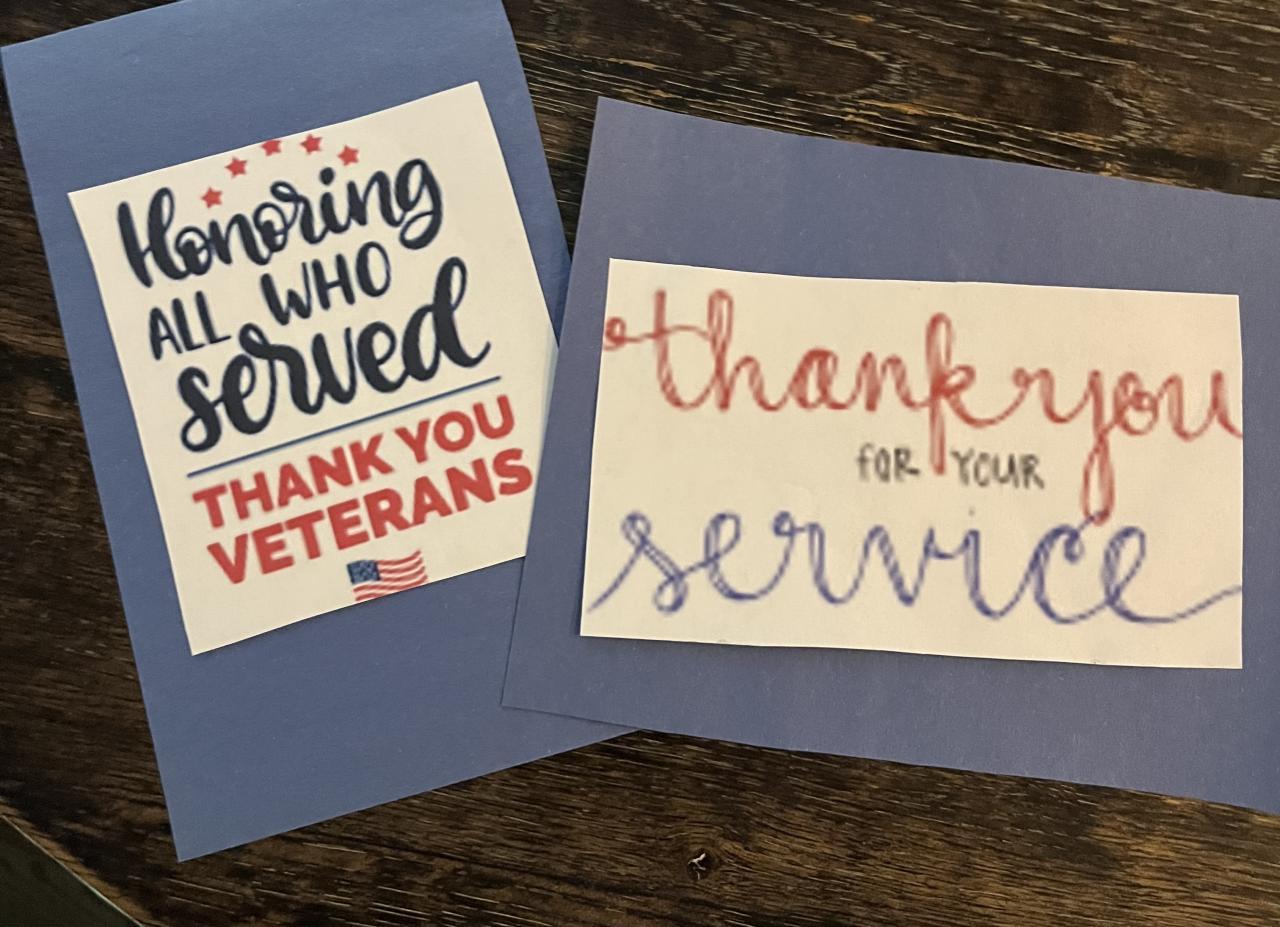 Honoring
ALL WHO
served
THANK YOU
VETERANS
thank you
FOR YOUR
service